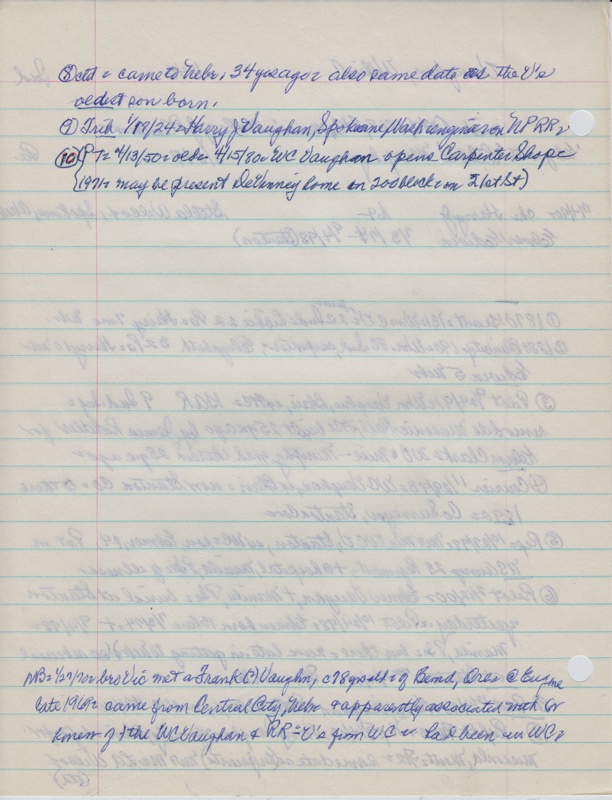 ⑧ ctd = came to Nebr. 34 yrs ago = also same date as the V's
oldest son born.
⑨ Trib 1/89/24 = Harry J Vaughan, Spokane, Wash engineer on NP RR =
⑩ PT = 4/13/80 = ctd = 4/15/80 = WC Vaughan opens Carpenter Shope
(1971 = may be present DeVinney home on 200 block on 21st St)
NB = 1/27/70 = bro Vic met a Frank (?) Vaughn, c78 yrs old = of Bend, Ore = @ Eugene
late 1969 = came from Central City, Nebr & apparently associated with or
knew of the WC Vaughan & RR = V's from WC = had been in WC =